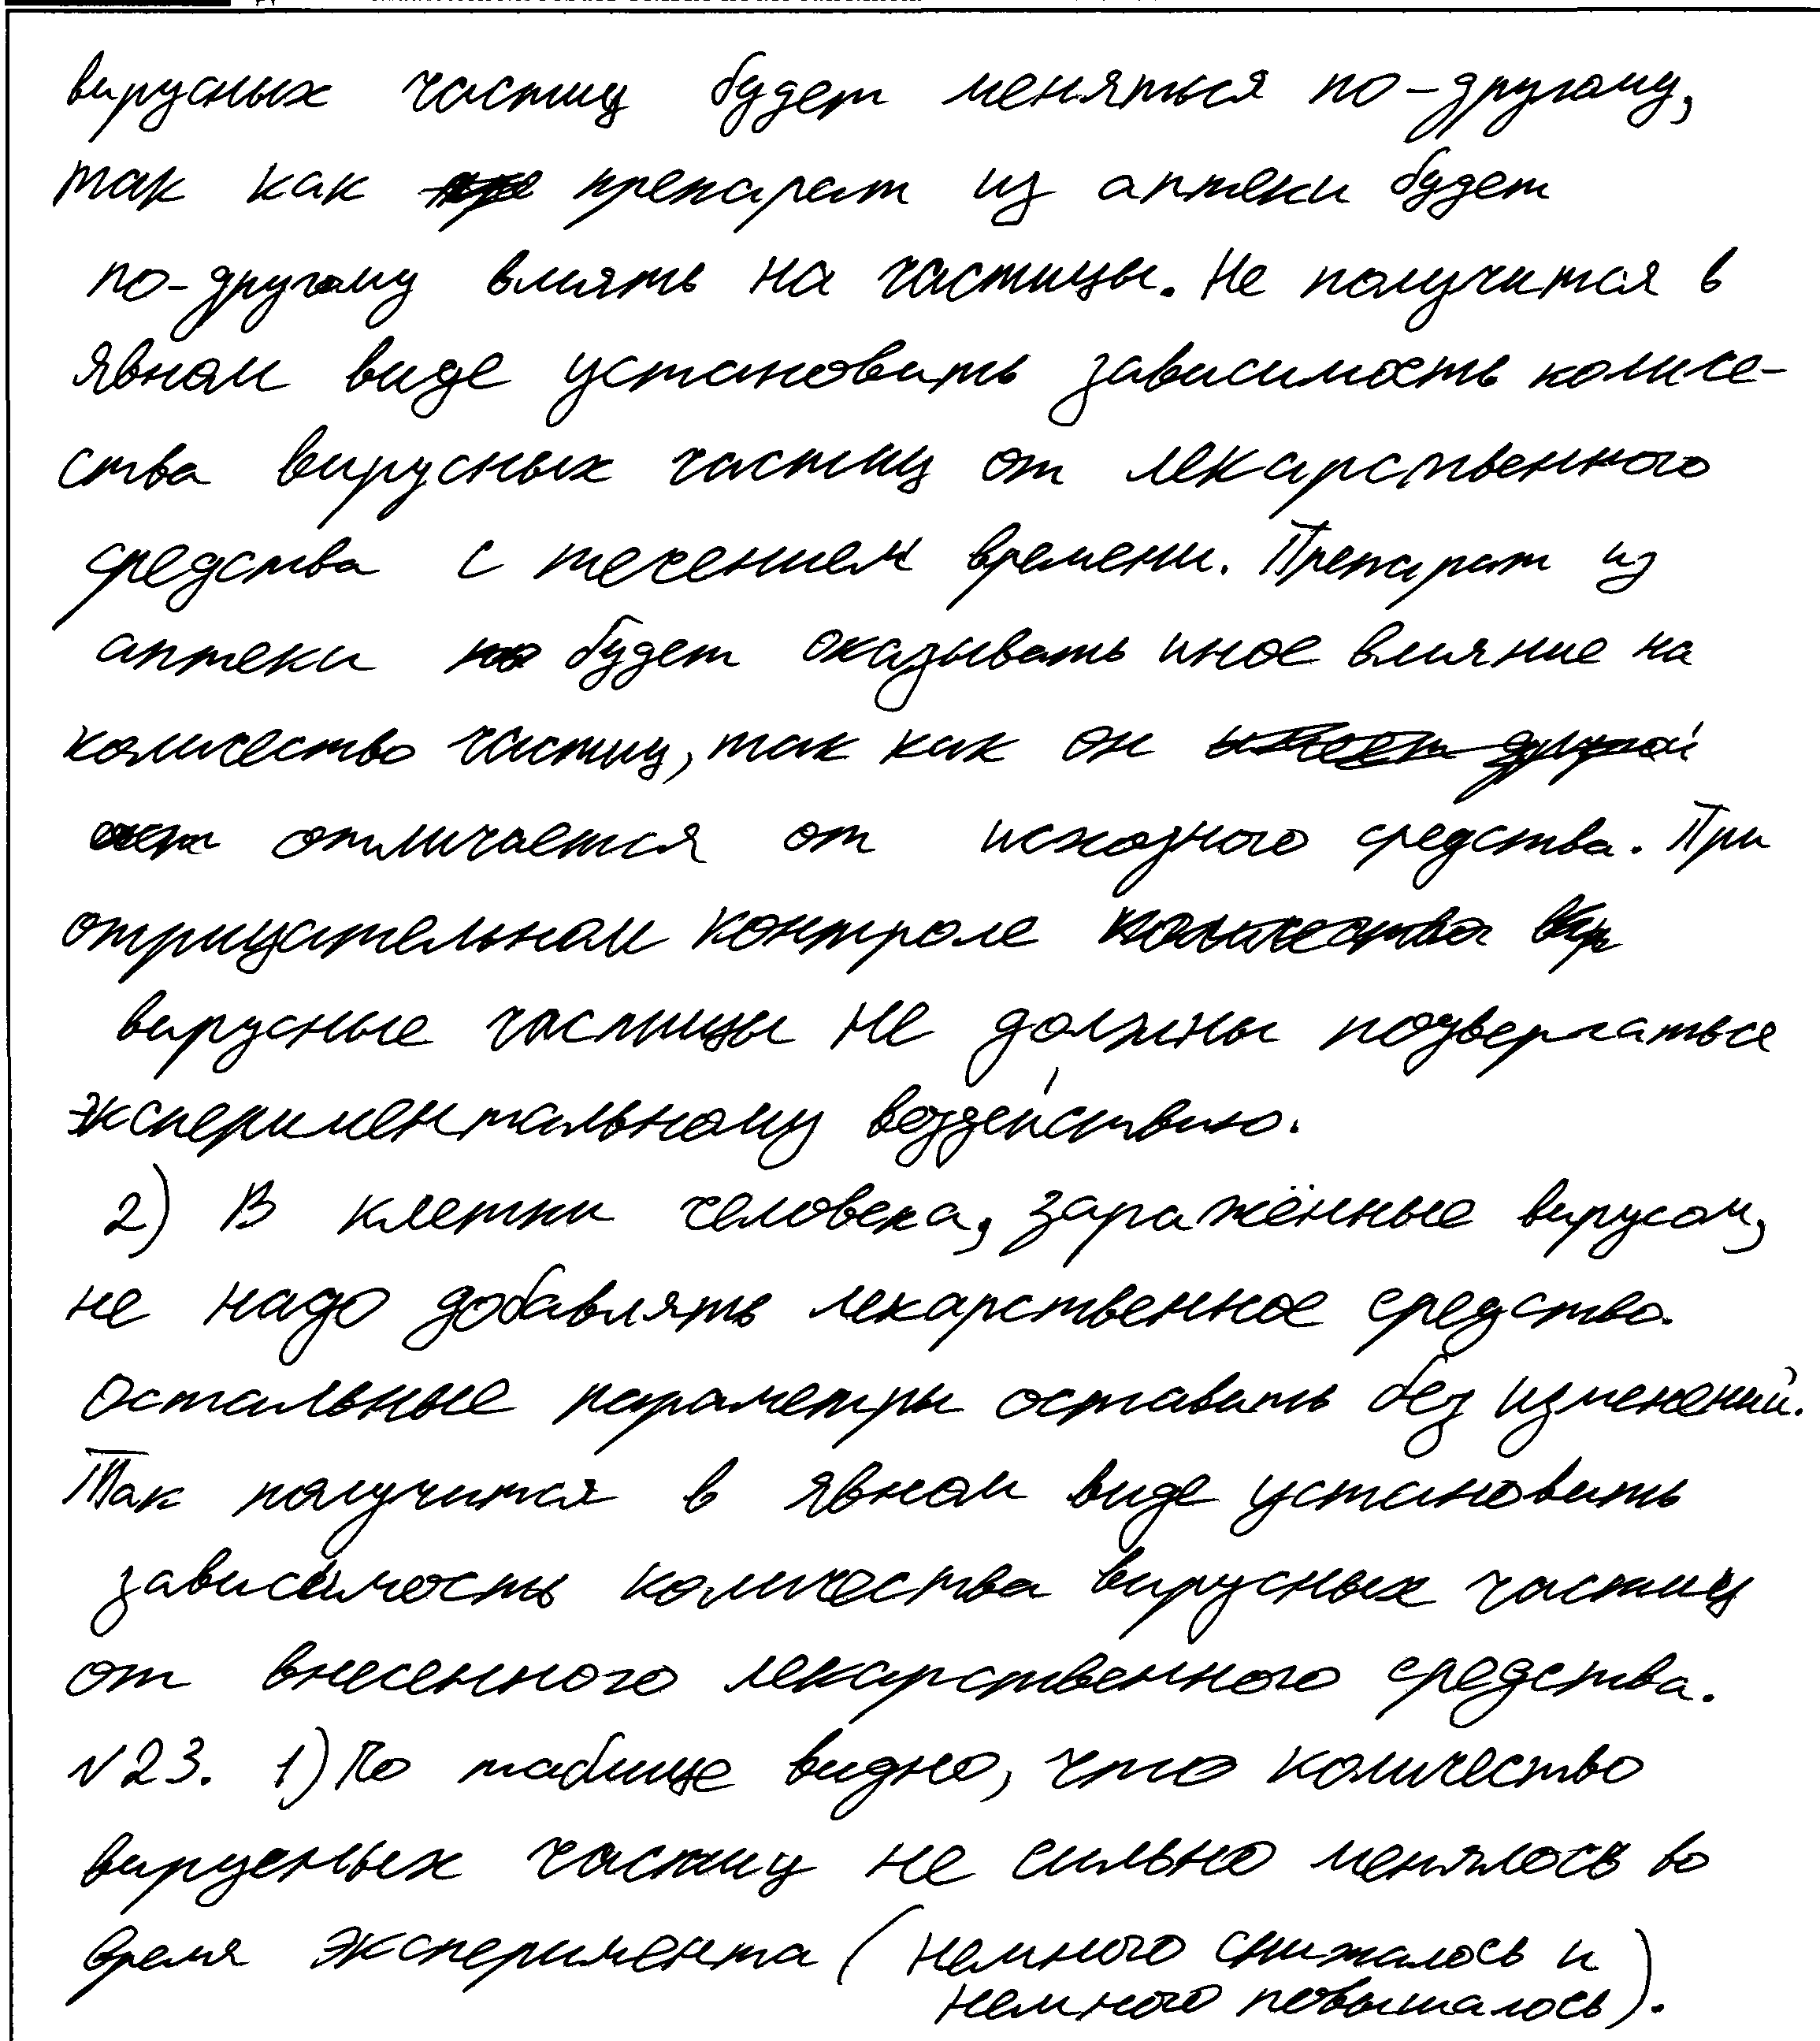 вирусных частиц будет меняться по-другому,
так как препарат из аптеки будет
по-другому влиять на частицы. Не получится в
явном виде установить зависимость количе-
ства вирусных частиц от лекарственного
средства с течением времени. Препарат из
аптеки будет оказывать иное влияние на
количество частиц, так как он имеет другой
отличается от исходного средства. При
отрицательном контроле количества вир
вирусные частицы не должны подвергаться
экспериментальному воздействию.
2) В клетки человека, заражённые вирусом,
не надо добавлять лекарственное средство.
Остальные параметры оставить без изменений.
Так получится в явном виде установить
зависимость количества вирусных частиц
от внесенного лекарственного средства.
№23. 1) По таблице видно, что количество
вирусных частиц не сильно менялось во
время эксперимента (немного снижалось и
немного повышалось).